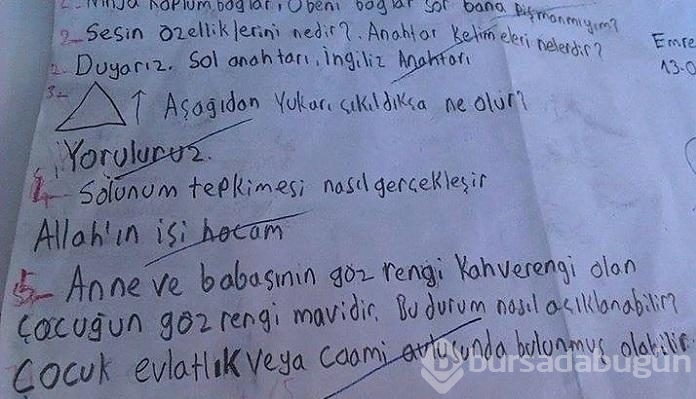 Ninja Kaplumbağalar, Obeni bağlar sor bana pişmanmıyım?
2- Sesin özelliklerini nedir? Anahtar Kelimeleri nelerdir?
2- Duyarız. Sol anahtarı, İngiliz Anahtarı
Emre
13-0
3- ↑ Aşağıdan Yukarı çıkıldıkça ne olur?
Yoruluruz.
4- Solunum tepkimesi nasıl gerçekleşir
Allah'ın işi hocam
5- Anne ve babasının göz rengi Kahverengi olan
çocuğun göz rengi mavidir. Bu durum nasıl açıklanabilir?
Çocuk evlatlık veya Caami avlusunda bulunmuş olabilir.
bursadabugün